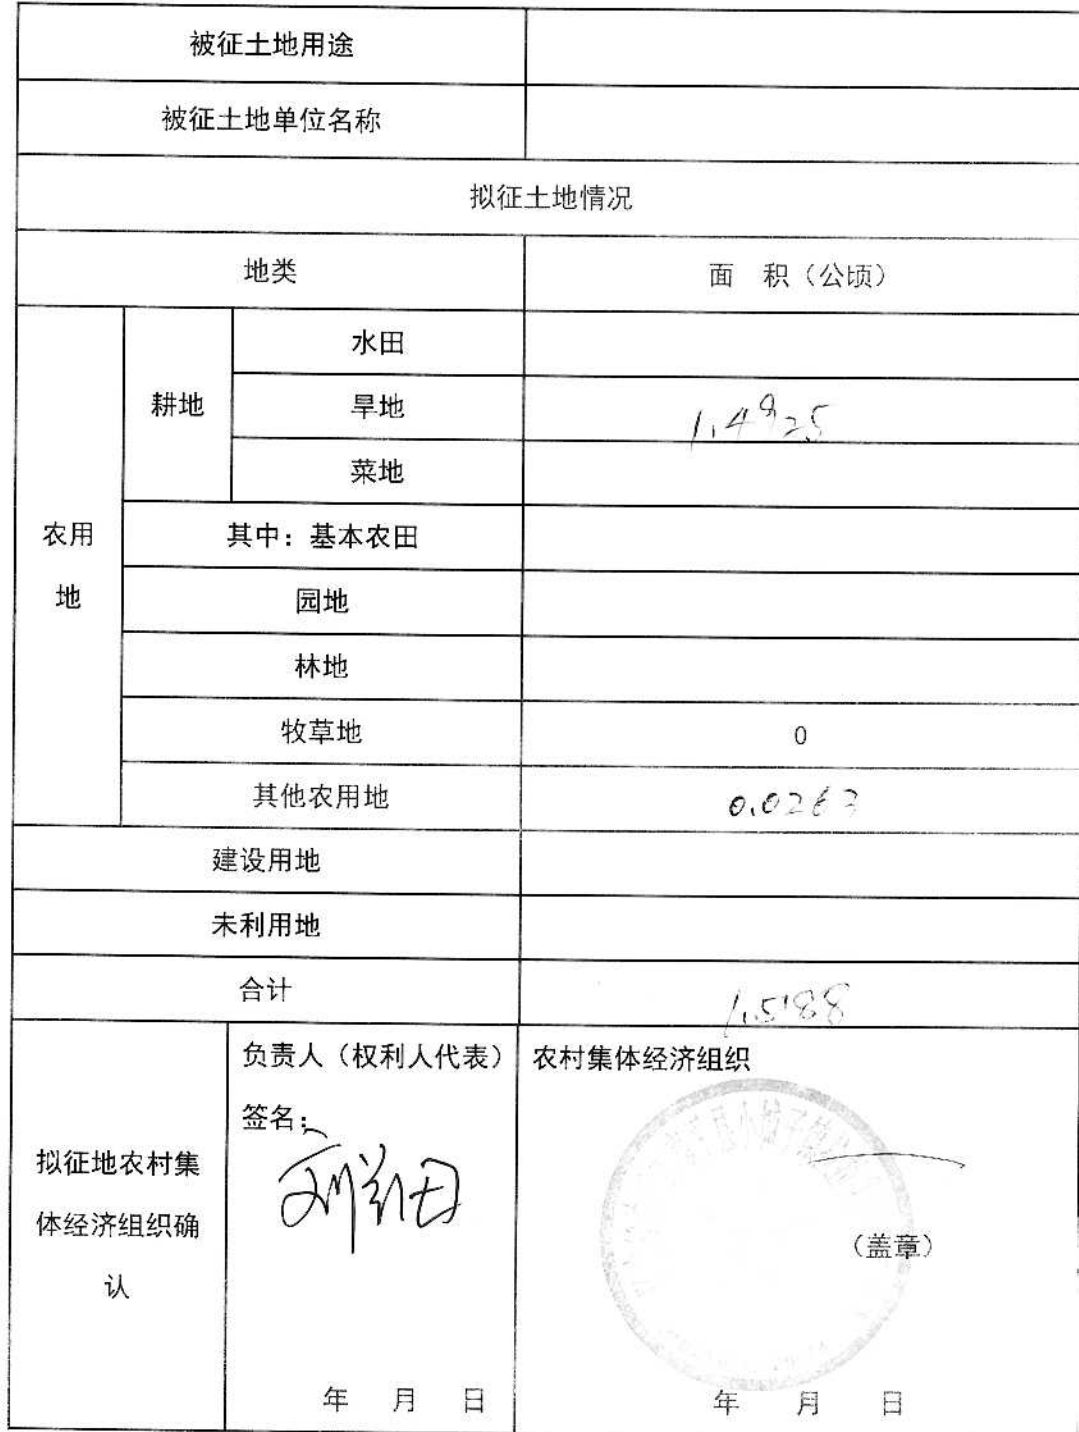 被征土地用途
被征土地单位名称
拟征土地情况
地类 面 积（公顷）
农用地
耕地
水田
旱地 1.4925
菜地
其中：基本农田
园地
林地
牧草地 0
其他农用地 0.0263
建设用地
未利用地
合计 1.5188
拟征地农村集
体经济组织确
认
负责人（权利人代表）
签名：
年 月 日
农村集体经济组织
（盖章）
年 月 日